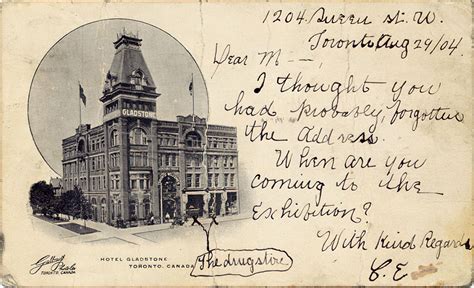 1204 Queen St. W.
Toronto Aug 29/04
Dear M——
I thought you
had probably forgotten
the address.
When are you
coming to the
Exhibition?
With Kind Regards
C.E
GLADSTONE
HOTEL GLADSTONE
TORONTO, CANADA
The drugstore
Photo
TORONTO, CANADA